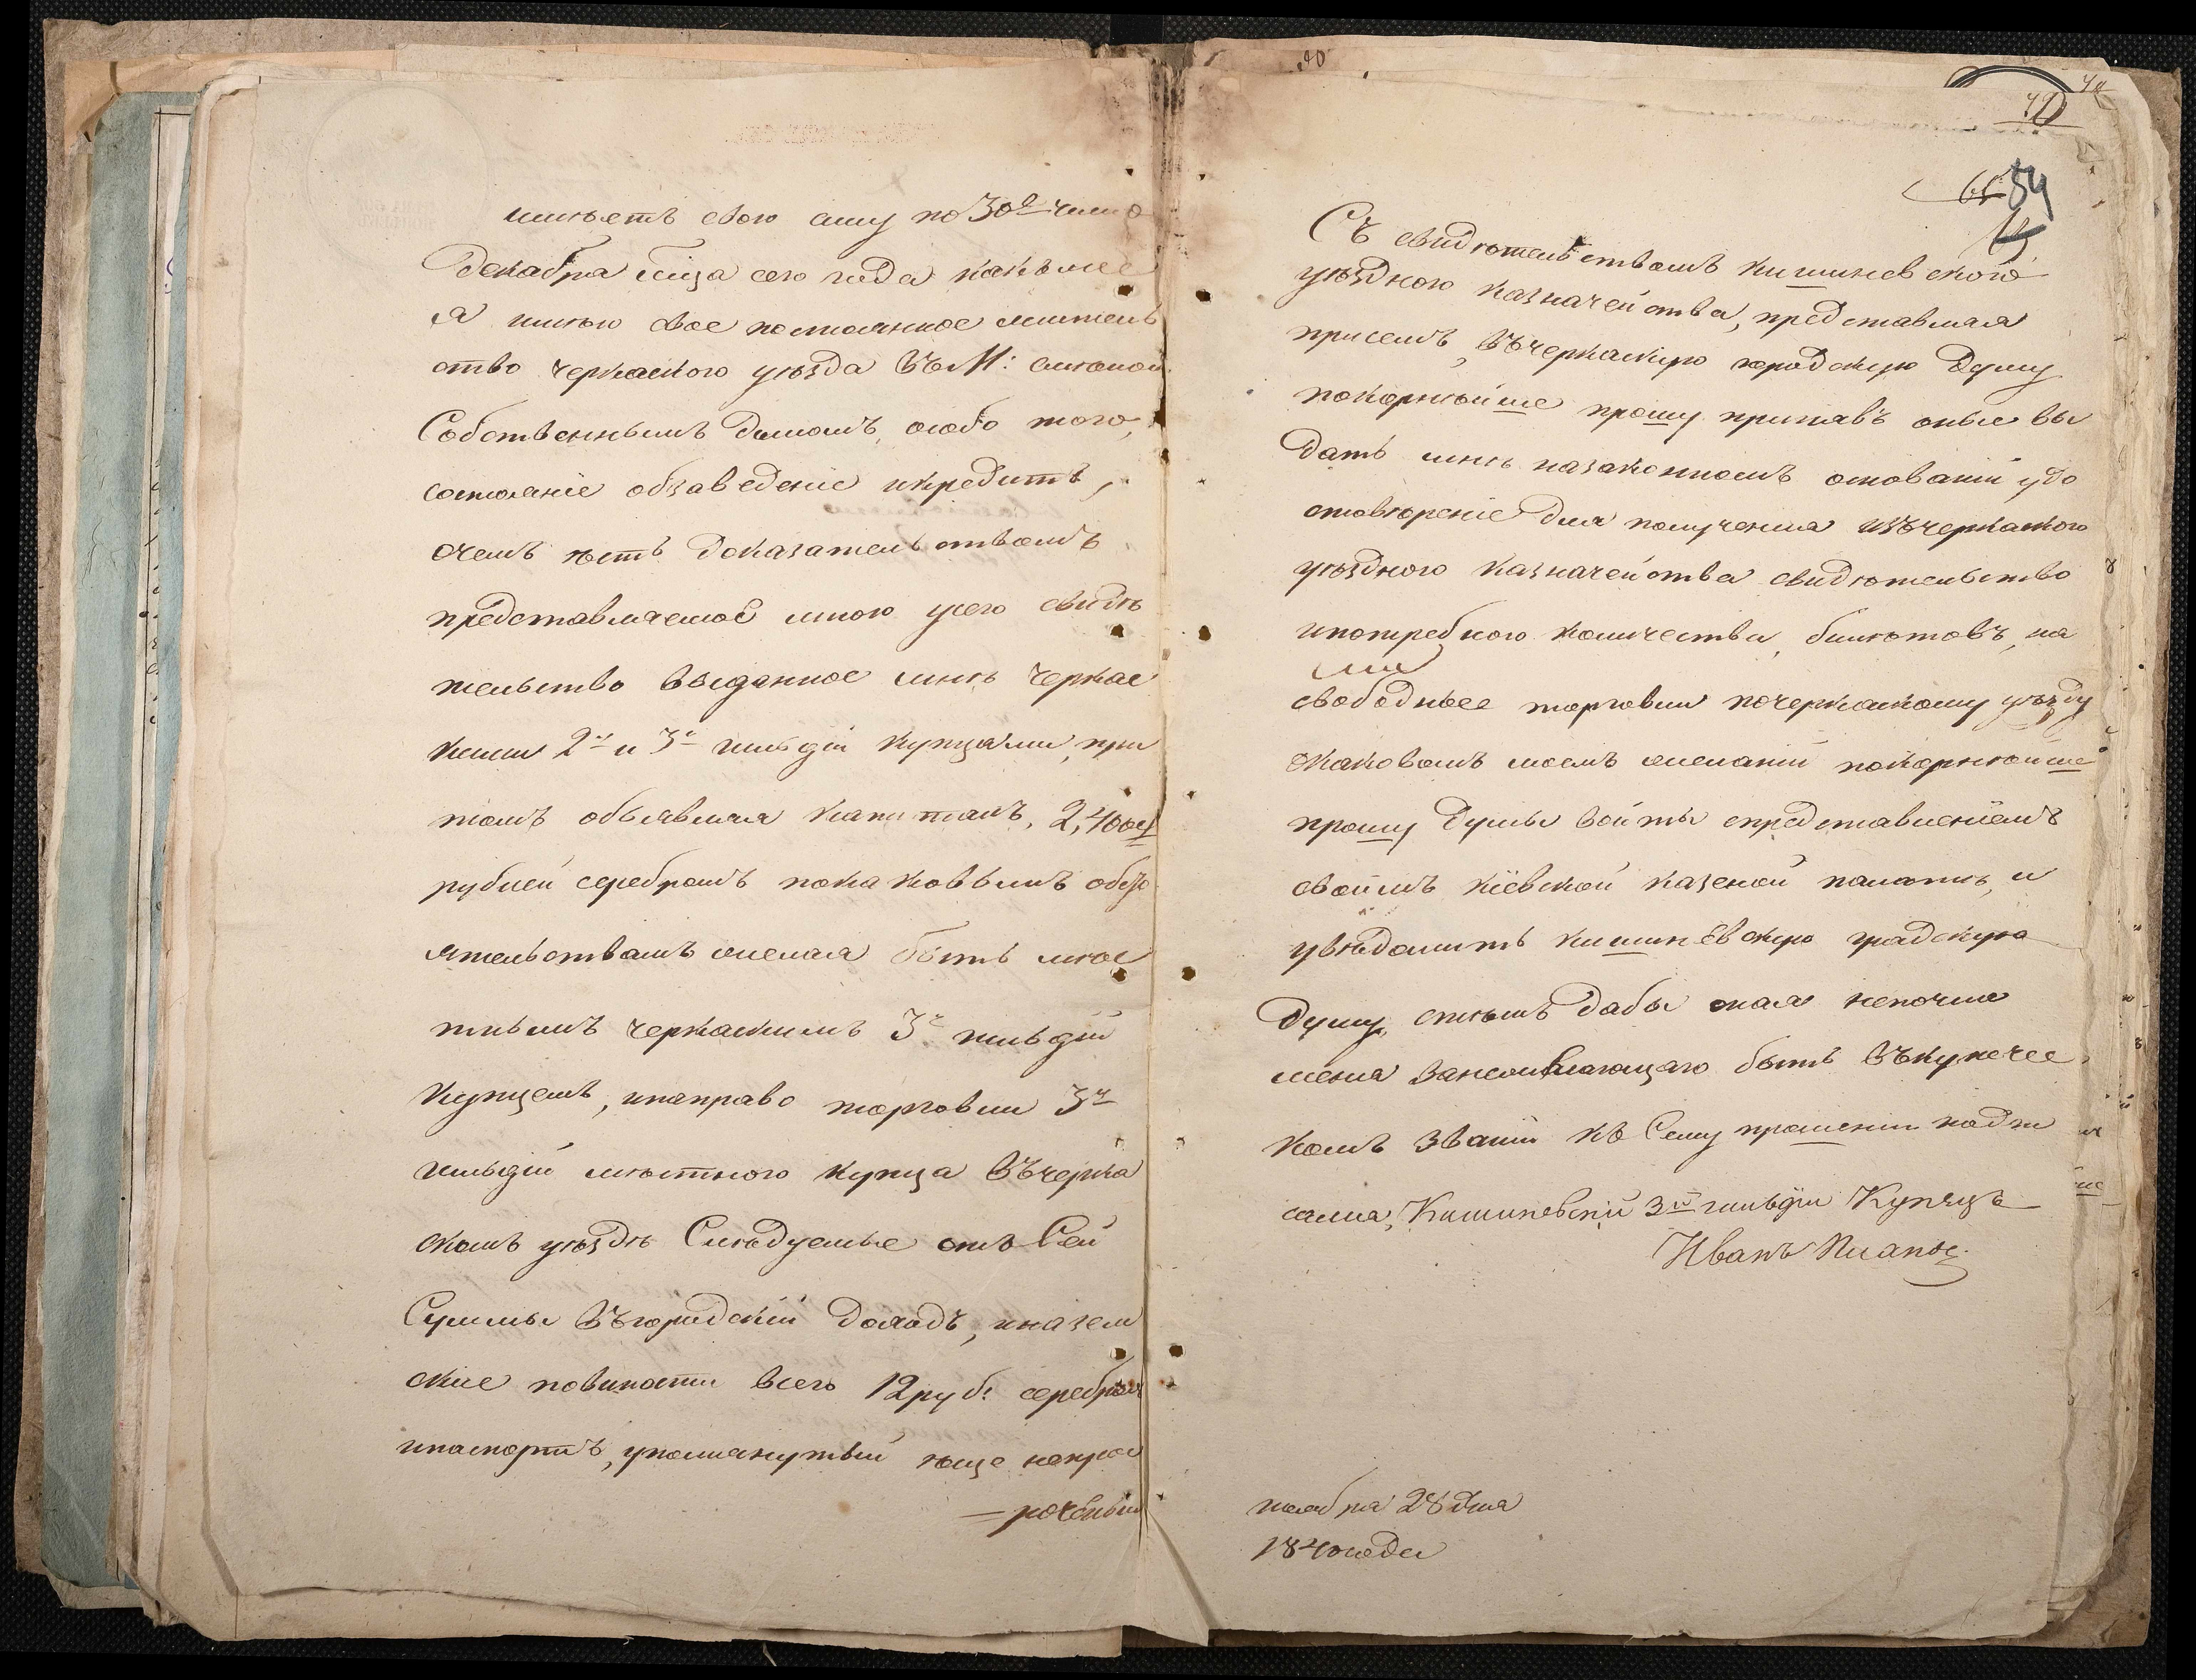 имѣетъ свою силу по 30е число
Декабря м̃ца сего года какъ же
я имѣю свое постоянное житель
ство черкаского уѣзда въ М:
Собственнымъ домомъ, особо того,
состояніе обзаведеніе икредитъ,
очемъ ѣсть доказательствомъ
представляемое мною усего свидѣ
тельство выданное мнѣ черкас
кими 2й и 3й гильдіи купцами, при
томъ объявляя капиталъ, 2,400
рубл­ей серебромъ покаковымъ обсто
ятельствамъ желая быть мѣс
тнымъ черкаскимъ 3й гильдіи
купцемъ, инаправо торговли 3й
гильдіи мѣстного купца въчерка
скомъ уѣздѣ Слѣдуемые отъ Сей
Суммы въгородскій доходъ, иназем
ские повиности всего 12 руб: серебром
ипаспортъ, упомянутый ѣще непрос
— роченый
70
65 84
Съ свидѣтельствомъ кишиневского
уѣздного казначейства, представляя
присемъ, въчеркаскую городскую Думу
покорнѣйше прошу принявъ оные вы
дать мнѣ назаконномъ основаніи удо
стовѣреніе для получения изъчеркаского
уѣздного казначейства свидѣтельство
ипотребного количества, билѣтовъ, на
свободные торговли почеркаскому уѣзду
окаковомъ моемъ желаніи покорнѣйше
прошу Думы войты спредставленіемъ
своимъ кіевской казеной палатѣ, и
увѣдомить кишинёвскую градскую
думу, стѣмъ дабы оная непочла
меня занежелающаго быть въкупечес
комъ званіи къ Сему прошенію подпи
сался, Кишиневскій 3й гильдіи Купецъ
Иванъ
ноября 28 дня
1840 года